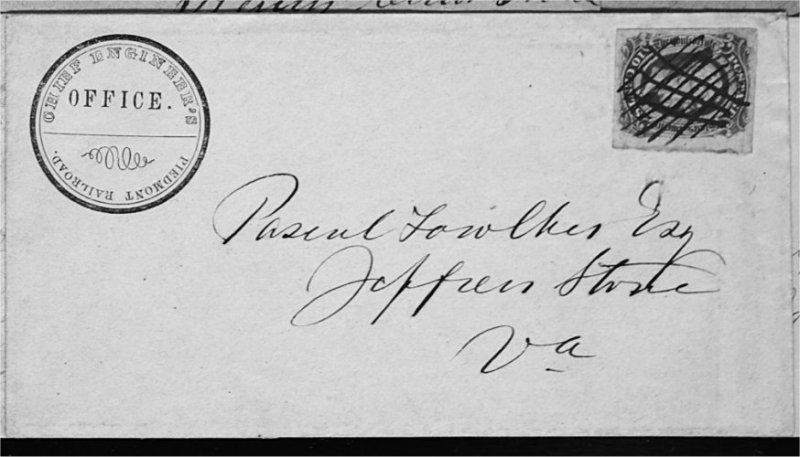 CHIEF ENGINEER'S
OFFICE.
PIEDMONT RAILROAD.
Pascal Fowlkes Esq
Jeffress Store
Va